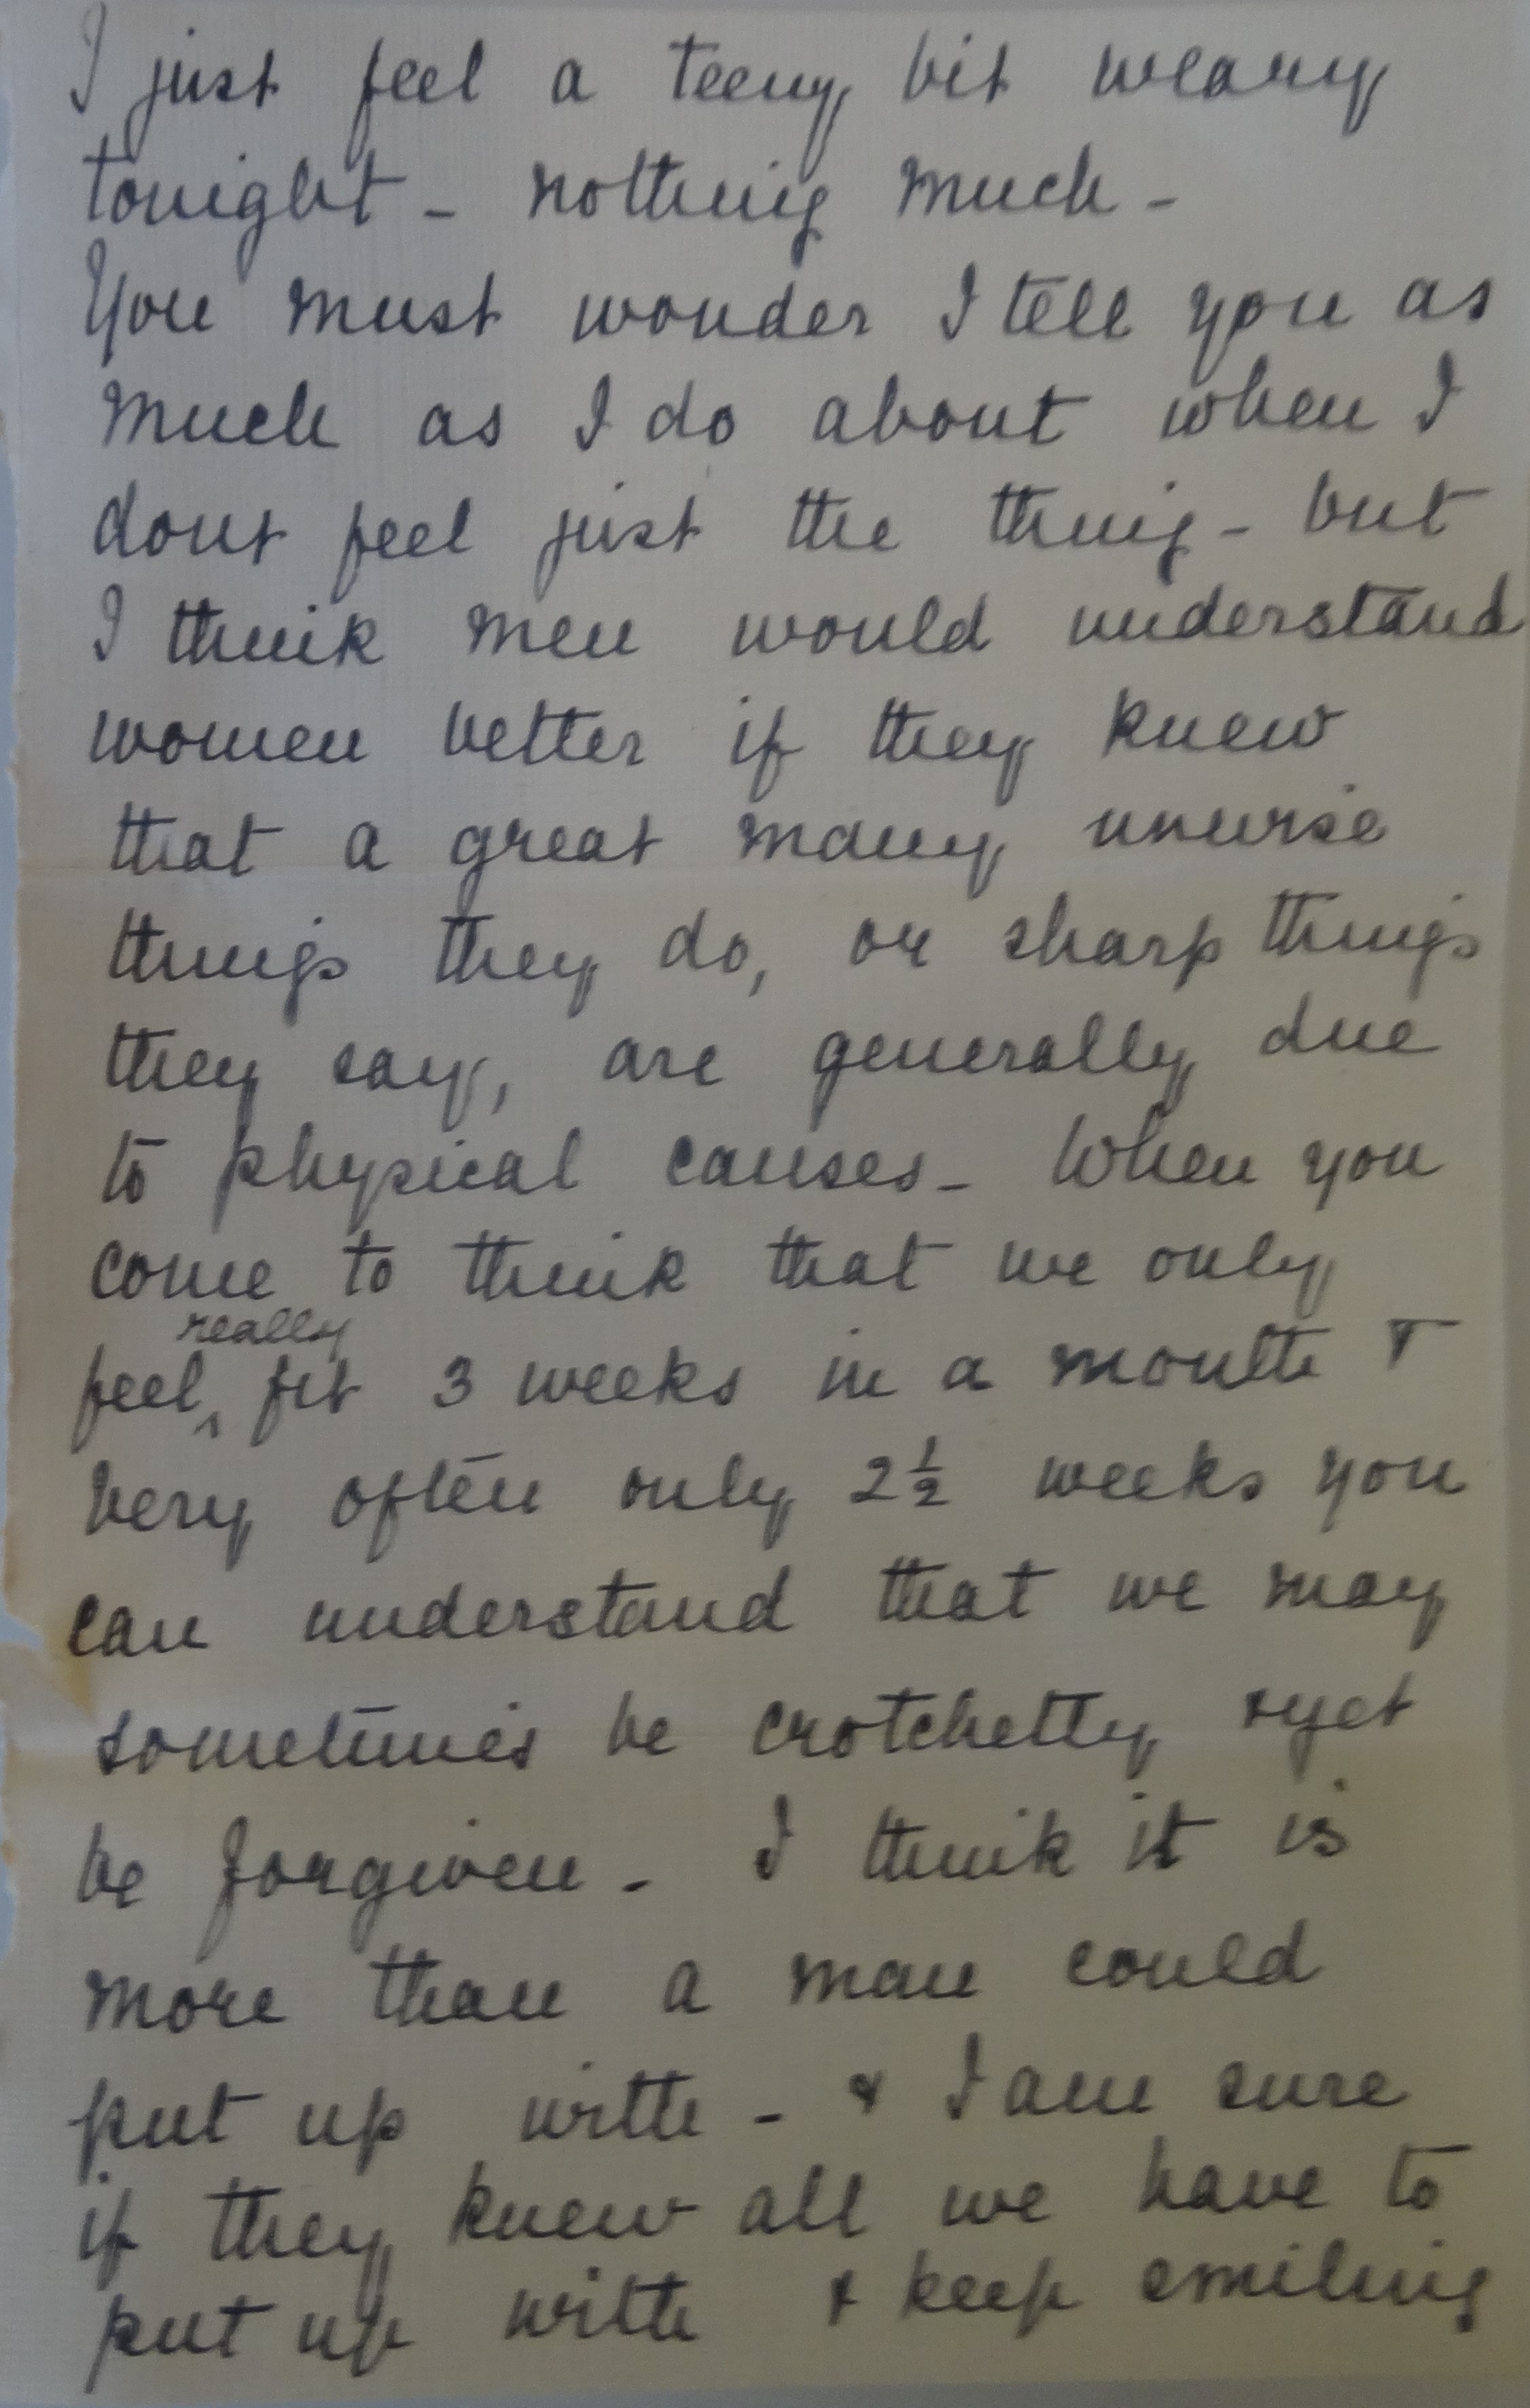 I just feel a teeny bit weary
tonight - nothing much -
You must wonder I tell you as
much as I do about when I
dont feel just the thing - but
I think men would understand
women better if they knew
that a great many unwise
things they do, or sharp things
they say, are generally due
to physical causes - When you
come to think that we only
really
feel ^ fit 3 weeks in a month &
very often only 2½ weeks you
can understand that we may
sometimes be crotchetty & yet
be forgiven - I think it is
more than a man could
put up with - & I am sure
if they knew all we have to
put up with & keep smiling